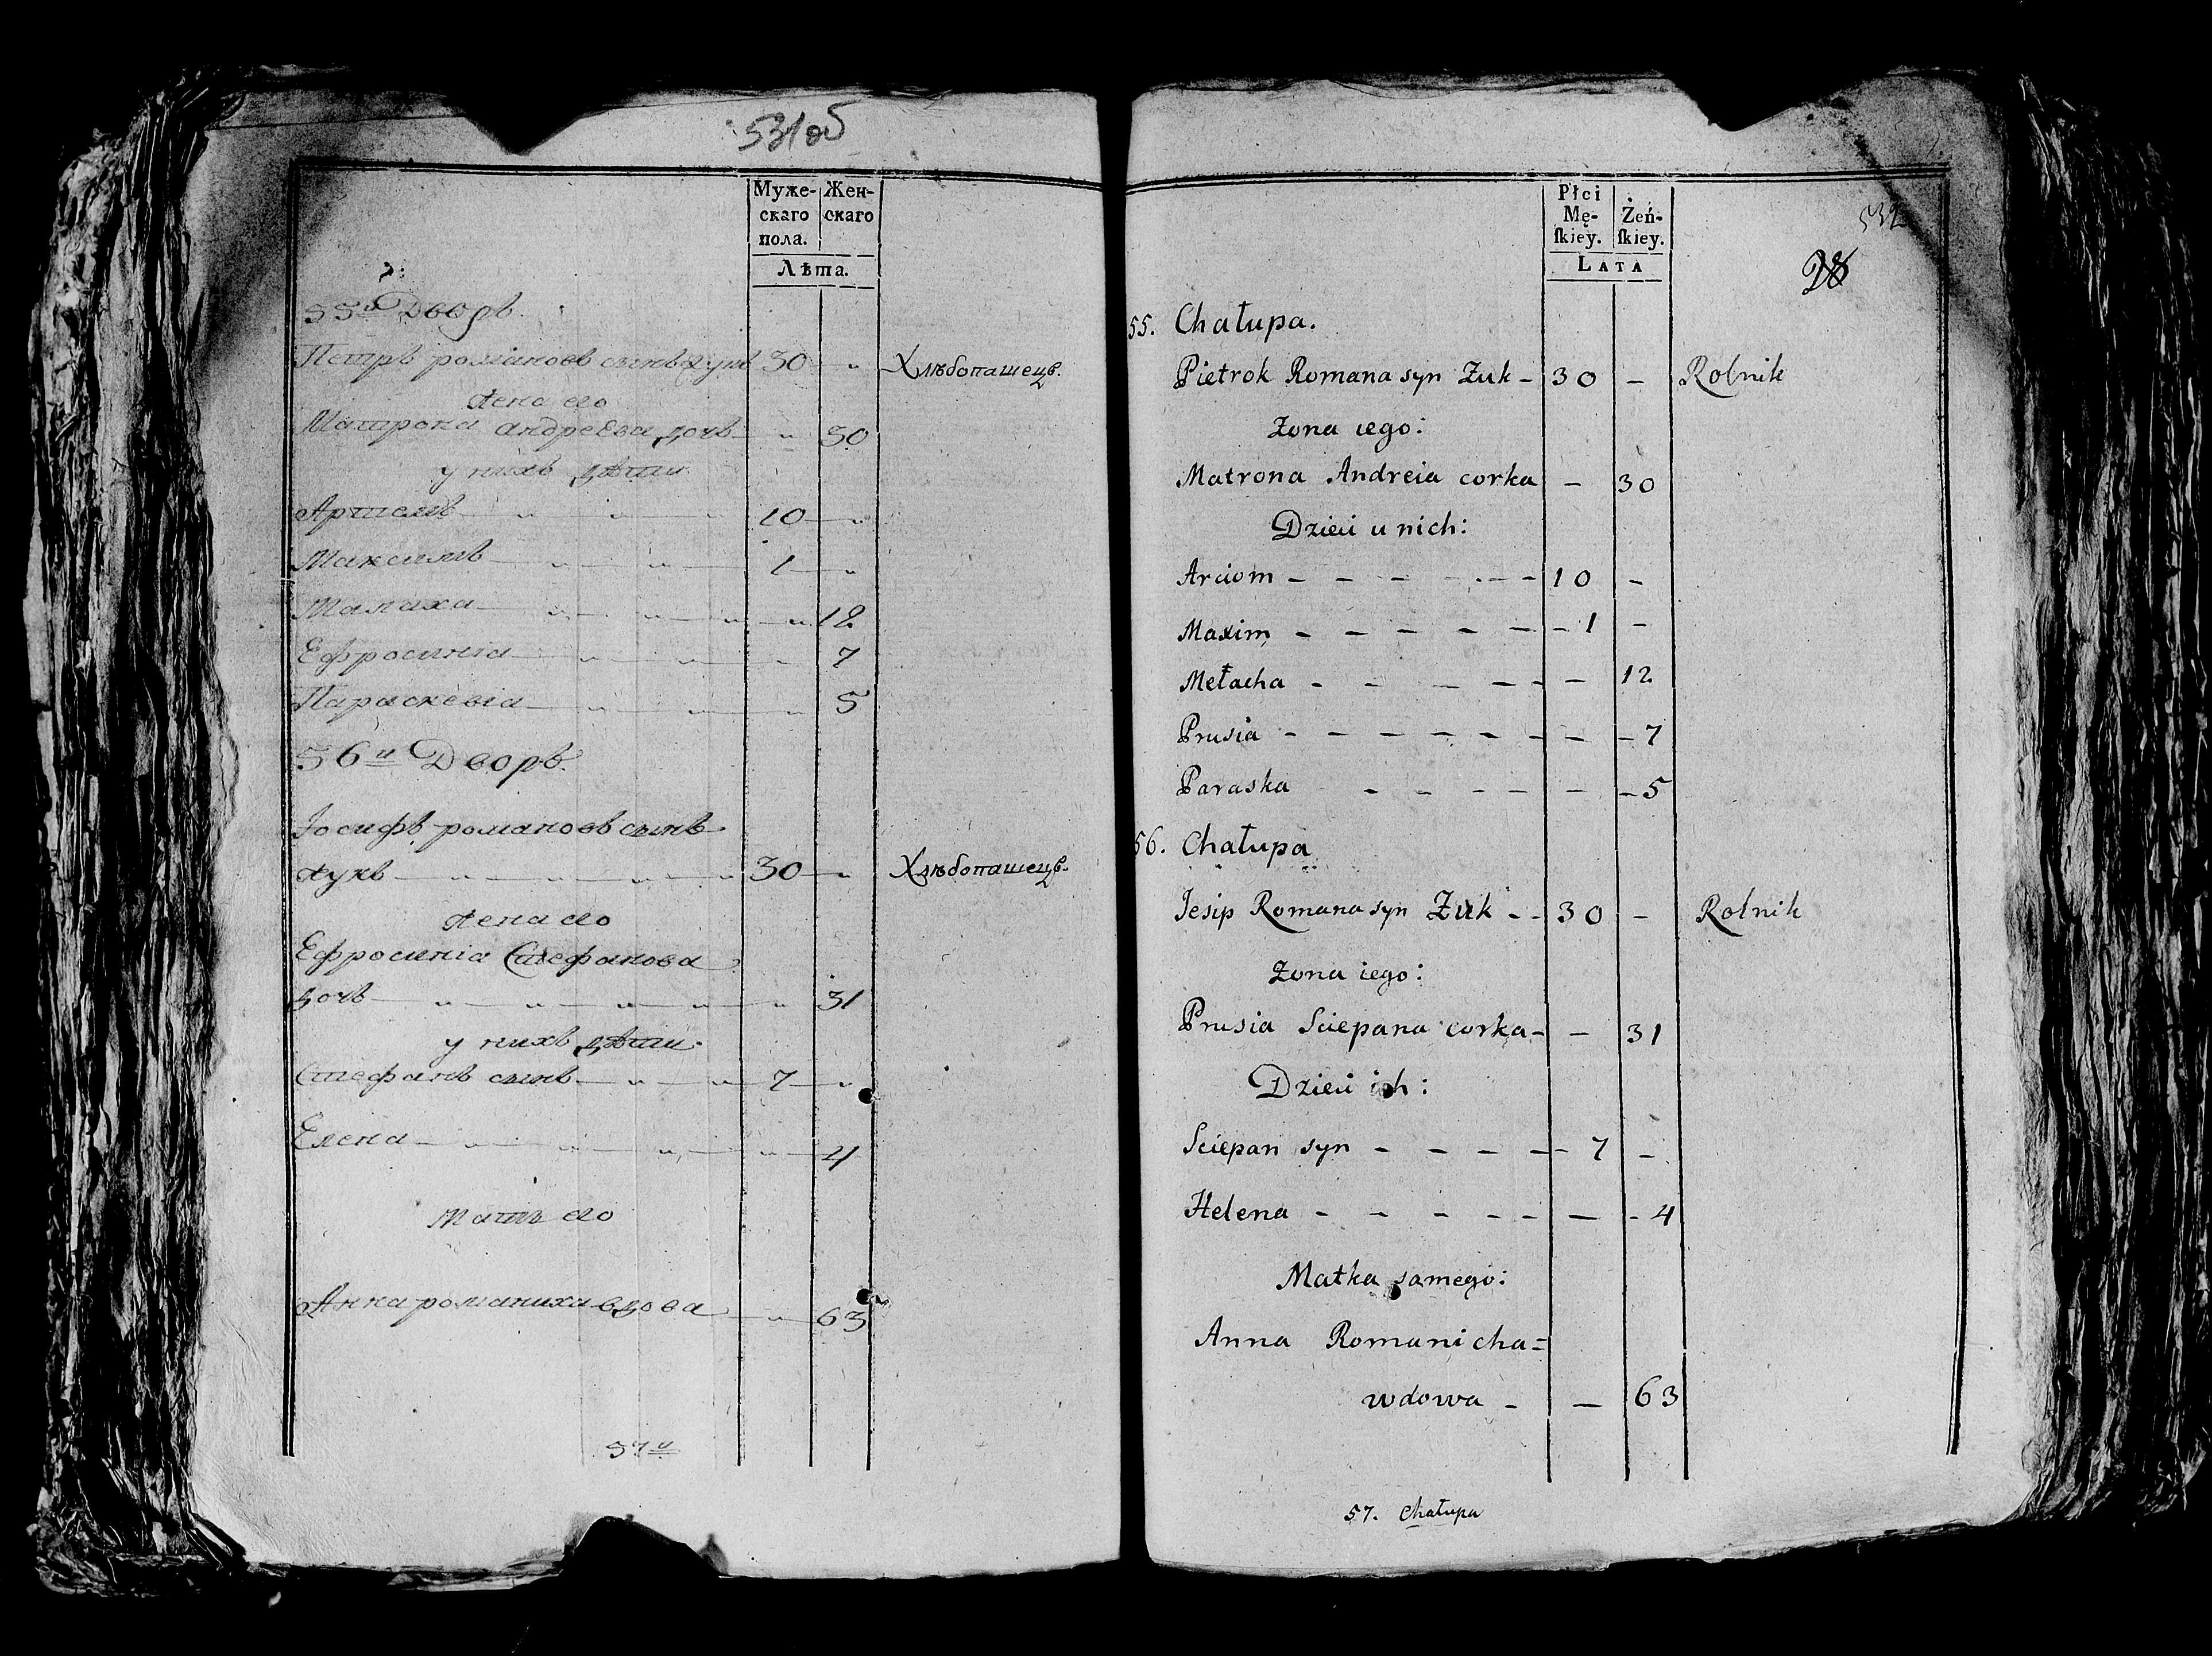 531об
Муже-
скаго
пола.
Жен-
скаго
Лѣта.
55й Дворъ.
Петръ романовъ сынъ жукъ 30 - Хлѣбопашецъ.
Жена его
Матрона андреева дочь - 30
у нихъ дѣти
Артемъ 10 -
Максимъ 1 -
Малаха - 12
Ефросиніа - 7
Параскевіа - 5
56й Дворъ.
Іосифъ романовъ сынъ
жукъ 30 - Хлѣбопашецъ.
Жена его
Ефросиніа Стефанова
дочь - 31
у нихъ дѣти.
Стефанъ сынъ 7 -
Елена - 4
Мать его
Анна романиха вдова - 63
57й
Płci
Mę-
ſkiey.
Żeń-
ſkiey.
LATA
532
28
55. Chałupa.
Pietrok Romana syn Żuk - 30 - Rolnik
Żona iego:
Matrona Andreia corka - 30
Dzieci u nich:
Arciom - - - - - - 10 -
Maxim - - - - - - 1 -
Mełacha - - - - - - 12
Prusia - - - - - - - - 7
Paraska - - - - - - 5
56. Chałupa
Jesip Romana syn Żuk - - 30 - Rolnik
Żona iego:
Prusia Sciepana corka - - 31
Dzieci ich:
Sciepan syn - - - - - 7 -
Helena - - - - - - - 4
Matka samego:
Anna Romanicha =
wdowa - - 63
57. Chałupa